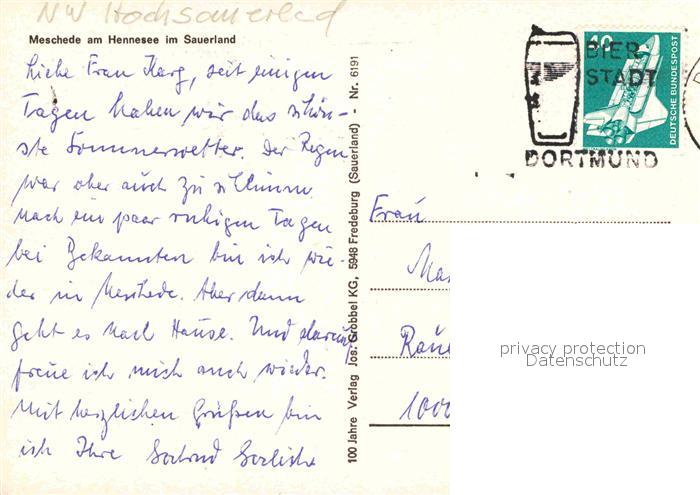 NW Hochsauerland
Meschede am Hennesee im Sauerland
Liebe Frau Karg, seit einigen
Tagen haben wir das schön-
ste Sommerwetter. Der Regen
war aber auch zu schlimm.
Nach ein paar ruhigen Tagen
bei Bekannten bin ich wie-
der in Meschede. Aber dann
geht es nach Hause. Und darauf
freue ich mich auch wieder.
Mit herzlichen Grüßen bin
ich Ihre
100 Jahre Verlag Jos. Grobbel KG, 5948 Fredeburg (Sauerland) - Nr. 6191
BIER
STADT
DORTMUND
40
DEUTSCHE BUNDESPOST
Frau
1000
privacy protection
Datenschutz